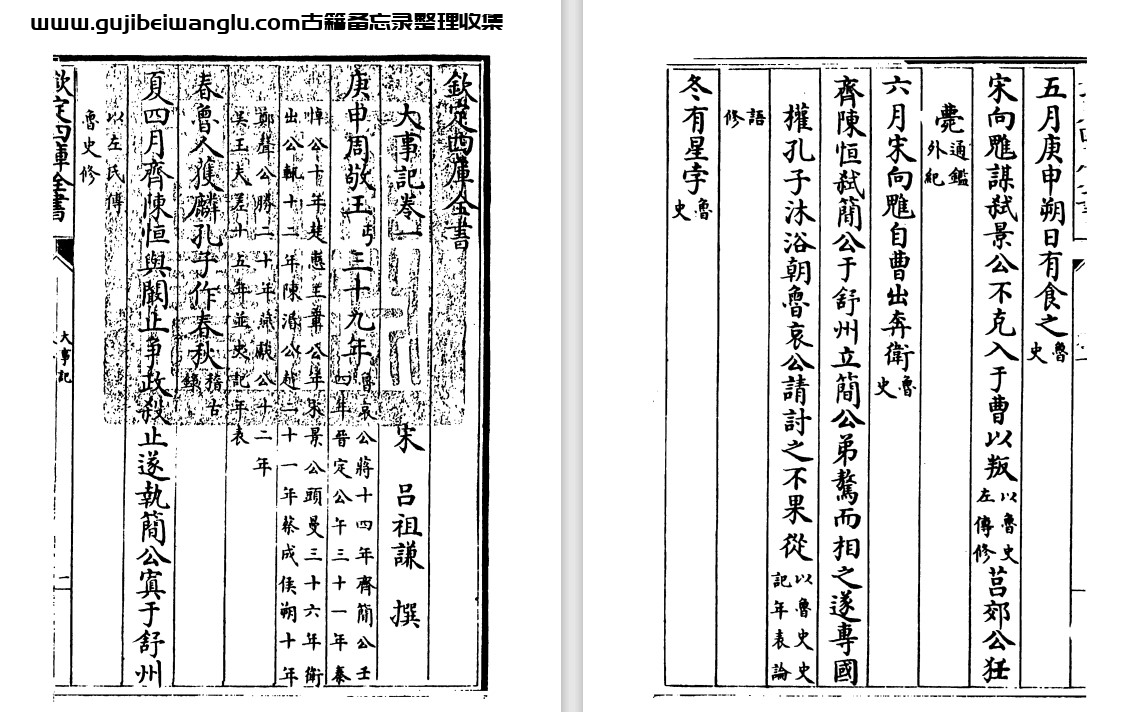 www.gujibeiwanglu.com古籍备忘录整理收集
欽定四庫全書
大事記卷一
宋 呂祖謙 撰
庚申周敬王丐三十九年
魯哀公蔣十四年齊簡公壬
四年晉定公午三十一年秦
悼公十年楚惠王章八年宋景公頭曼三十六年衛
出公輒十二年陳湣公越二十一年蔡成侯朔十年
鄭聲公勝二十年燕獻公十二年
吳王夫差十五年並史記年表
春魯人獲麟孔子作春秋
稽古
錄
夏四月齊陳恒與闞止爭政殺止遂執簡公寘于舒州
以左氏傳
魯史修
欽定四庫全書
大事記
五月庚申朔日有食之
魯
史
宋向魋謀弒景公不克入于曹以叛
以魯史
左傳修
莒郊公狂
薨
通鑑
外紀
六月宋向魋自曹出奔衛
魯
史
齊陳恒弒簡公于舒州立簡公弟驁而相之遂專國
權孔子沐浴朝魯哀公請討之不果從
以魯史史
記年表論
語
修
冬有星孛
魯
史